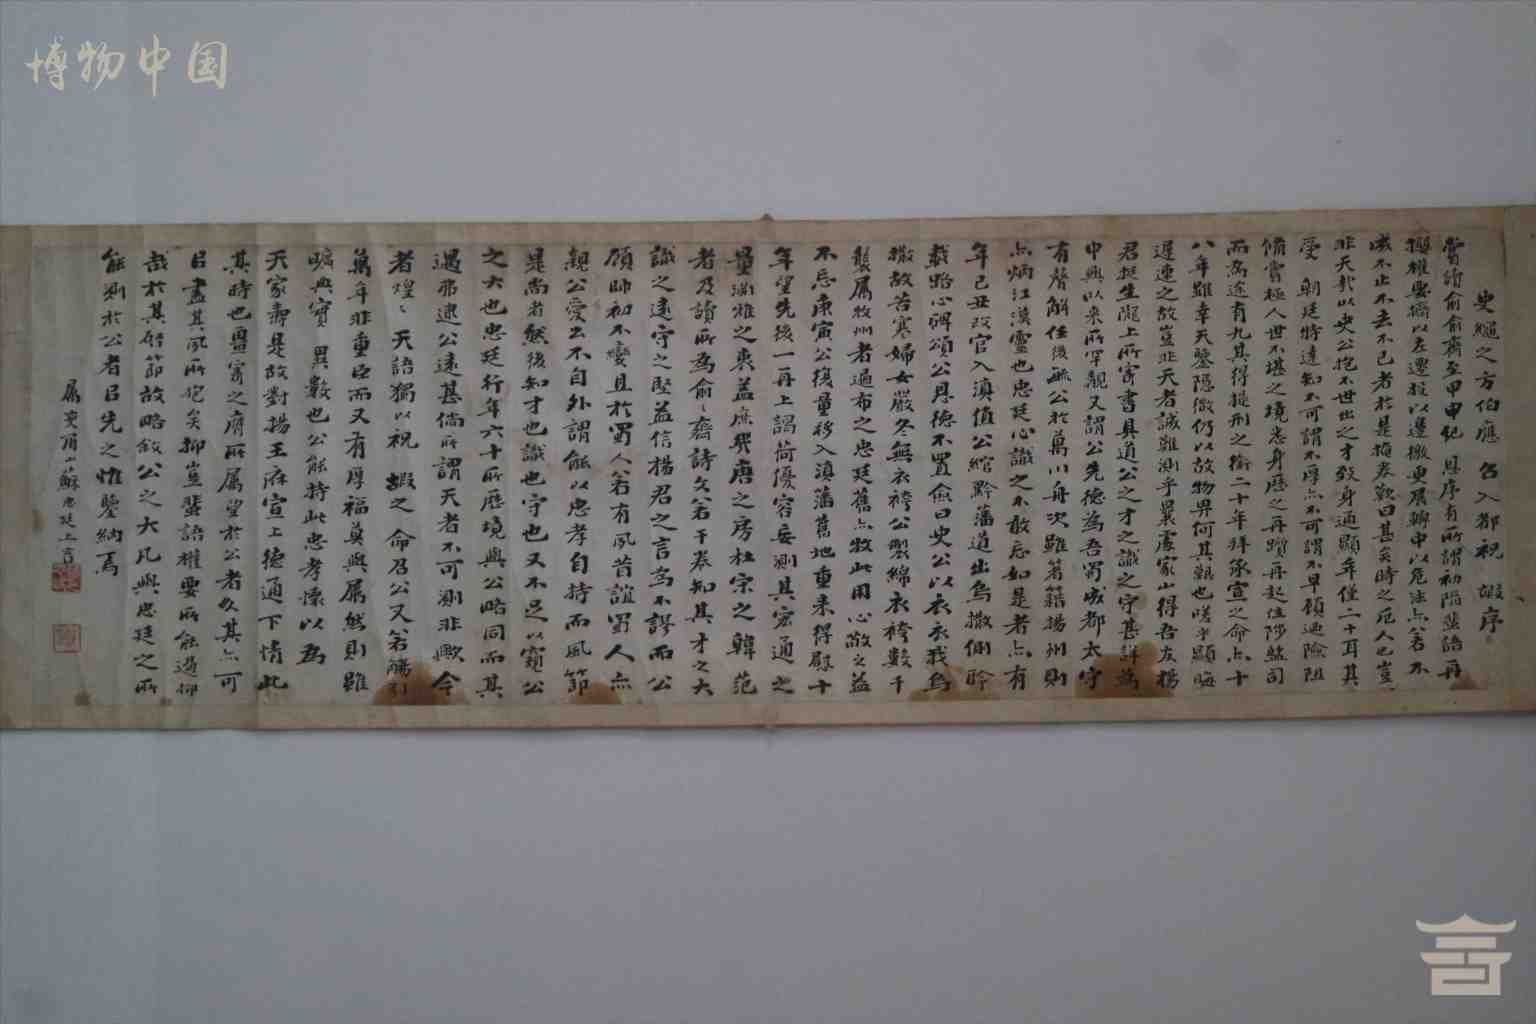 博物中国
史繩之方伯應 召入都祝 嘏序
嘗讀俞俞齋至甲申紀 恩序有所謂初陷蜚語再
攖權要擠以左遷投以邊徼更展轉中以危法亦若不
咸不止不去不已者於是掩卷歎曰甚矣時之厄人也豈
非天哉以史公抱不世出之才致身通顯年僅二十耳其
受 朝廷特達知不可謂不厚亦不可謂不早顧迍險阻
備嘗極人世不堪之境忠身歷之再躓再起位陟監司
而為途有九其得提刑之銜二十年拜承宣之命亦十
八年雖幸天鑒隱微仍以故物畀何其艱也嗟乎顯晦
遲速之故豈非天者誠難測乎曩處家山得吾友楊
君挺生隴上所寄書具道公之才之識之守甚詳為
中興以來所罕覯又謂公先德為吾蜀成都太守
有聲解任後毓公於萬川舟次雖著籍揚州則
亦炳江漢靈也忠廷心識之不敢忘如是者亦有
年己丑改官入滇值公綰黔藩道出烏撒側聆
載路心碑頌公恩德不置僉曰史公以衣衣我烏
撒故苦寒婦女嚴冬無衣袴公製綿衣袴數千
襲屬牧州者遍布之忠廷舊亦牧此用心敬之益
不忘庚寅公復量移入滇藩舊地重来得慰十
年望先後一再上謁荷優容妄測其宏通之
量淵雅之衷益庶幾唐之房杜宋之韓范
者及讀所為俞俞齋詩文若干卷知其才之大
識之遠守之堅益信楊君之言為不謬而公
顧師初不變且於蜀人若有夙昔誼蜀人亦
親公愛公不自外謂能以忠孝自持而風節
是尚者然後知才也識也守也又不足以窺公
之大也忠廷行年六十所歷境與公略同而其
過弗逮公遠甚倘所謂天者不可測非歟今
者煌煌天語獨以祝 嘏之 命召公又若觴引
萬年非重臣而又有厚福莫與屬然則雖
曠典實 異數也公能持此忠孝懷以為
天家壽是故對揚王庥宣上德通下情此
其時也疆寄之膺所屬望於公者久其亦可
以盡其夙所抱矣抑豈蜚語權要所能遏抑
哉於其啟節故略敘公之大凡與忠廷之所
能測於公者以先之惟鑒納焉
屬吏 蘇忠廷上言